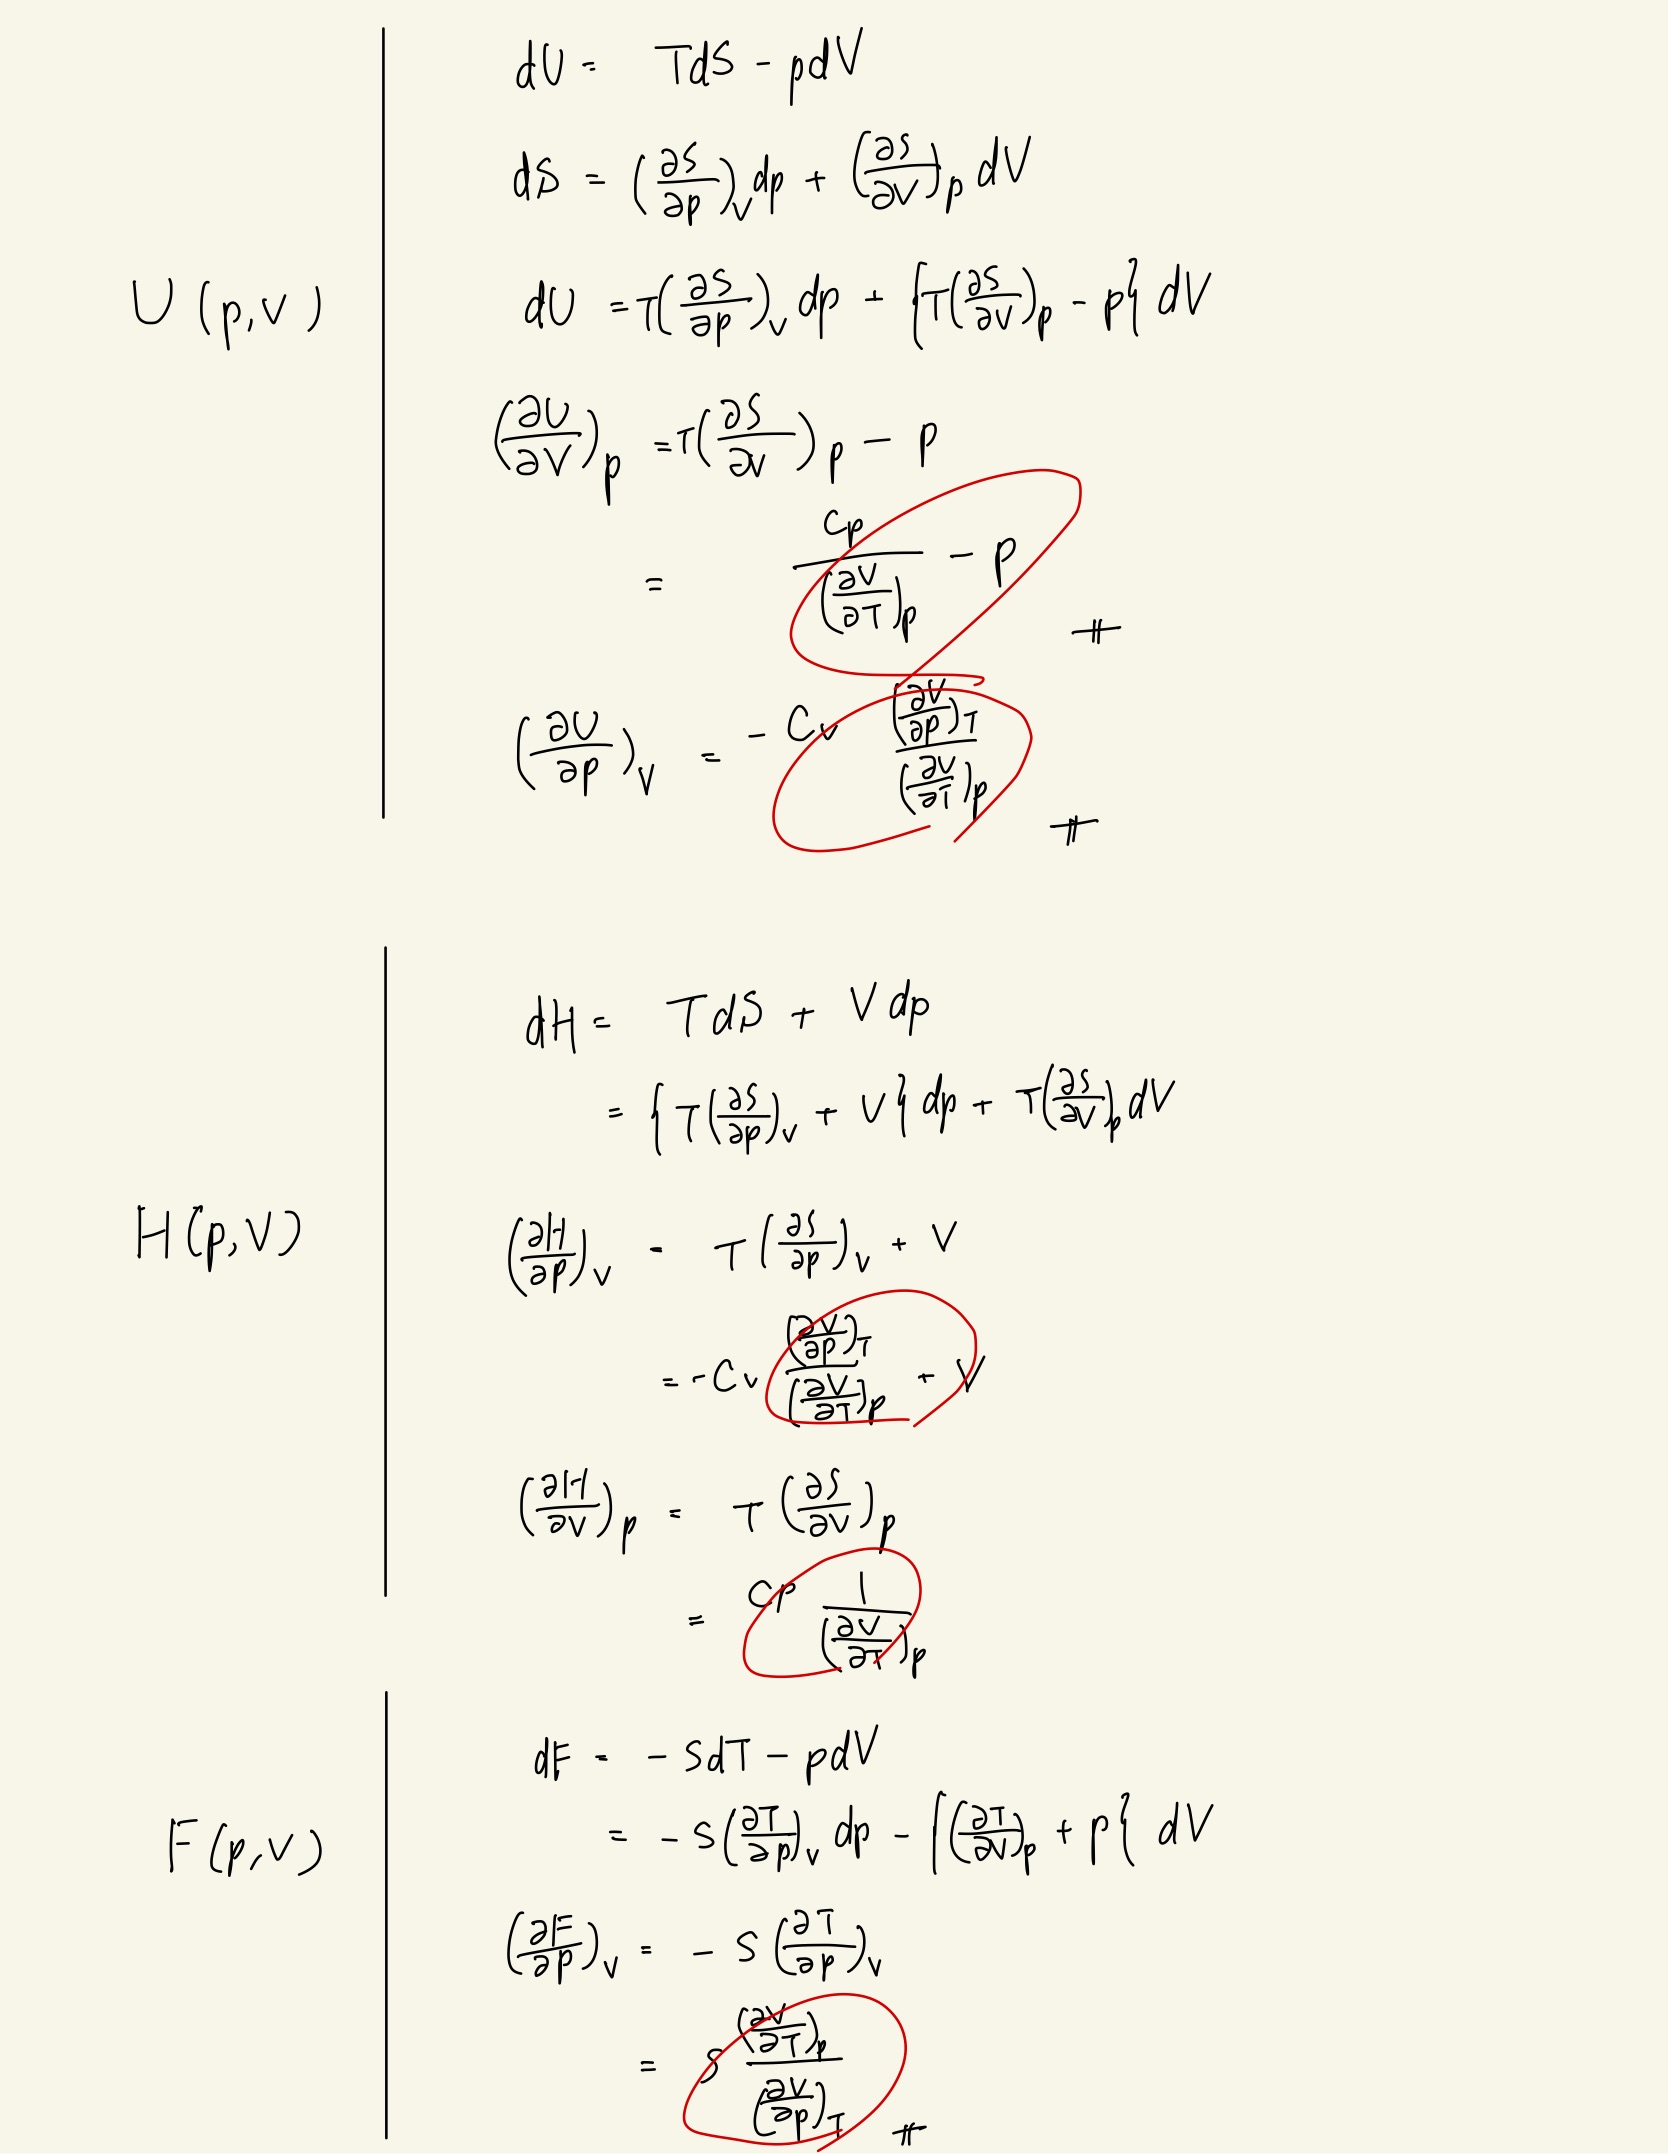 dU = TdS - pdV
dS = (∂S/∂p)_V dp + (∂S/∂V)_p dV
U (p,V)
dU = T(∂S/∂p)_V dp + {T(∂S/∂V)_p - p} dV
(∂U/∂V)_p = T(∂S/∂V)_p - p
= Cp/(∂V/∂T)_p - p
(∂U/∂p)_V = - Cv (∂V/∂p)_T/(∂V/∂T)_p
dH = TdS + Vdp
= {T(∂S/∂p)_V + V} dp + T(∂S/∂V)_p dV
H(p,V)
(∂H/∂p)_V = T(∂S/∂p)_V + V
= -Cv (∂V/∂p)_T/(∂V/∂T)_p + V
(∂H/∂V)_p = T(∂S/∂V)_p
= Cp 1/(∂V/∂T)_p
dF = - SdT - pdV
= - S(∂T/∂p)_V dp - {(∂T/∂V)_p + p} dV
F(p,V)
(∂F/∂p)_V = - S(∂T/∂p)_V
= S (∂V/∂T)_p/(∂V/∂p)_T